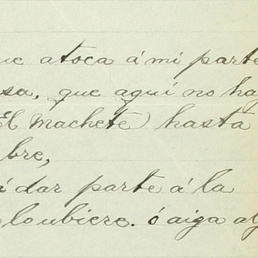 ue atoca á mi parte
sa, que aquí no ha
(El Machete) hasta
bre,
dar parte á la
loubiere. ó aiga al